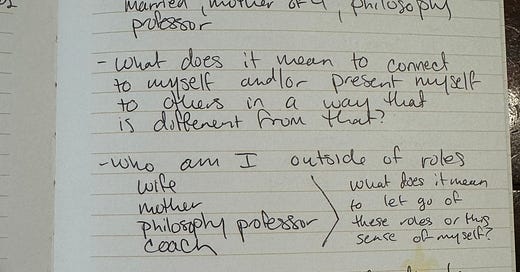 married, mother of 4, philosophy
professor
- what does it mean to connect
to myself and/or present myself
to others in a way that
is different from that?
- who am I outside of roles
wife
mother
philosophy professor
coach
what does it mean
to let go of
these roles or this
sense of myself?